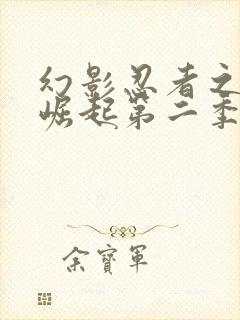 幻影忍者之
崛起第二季
余寶軍